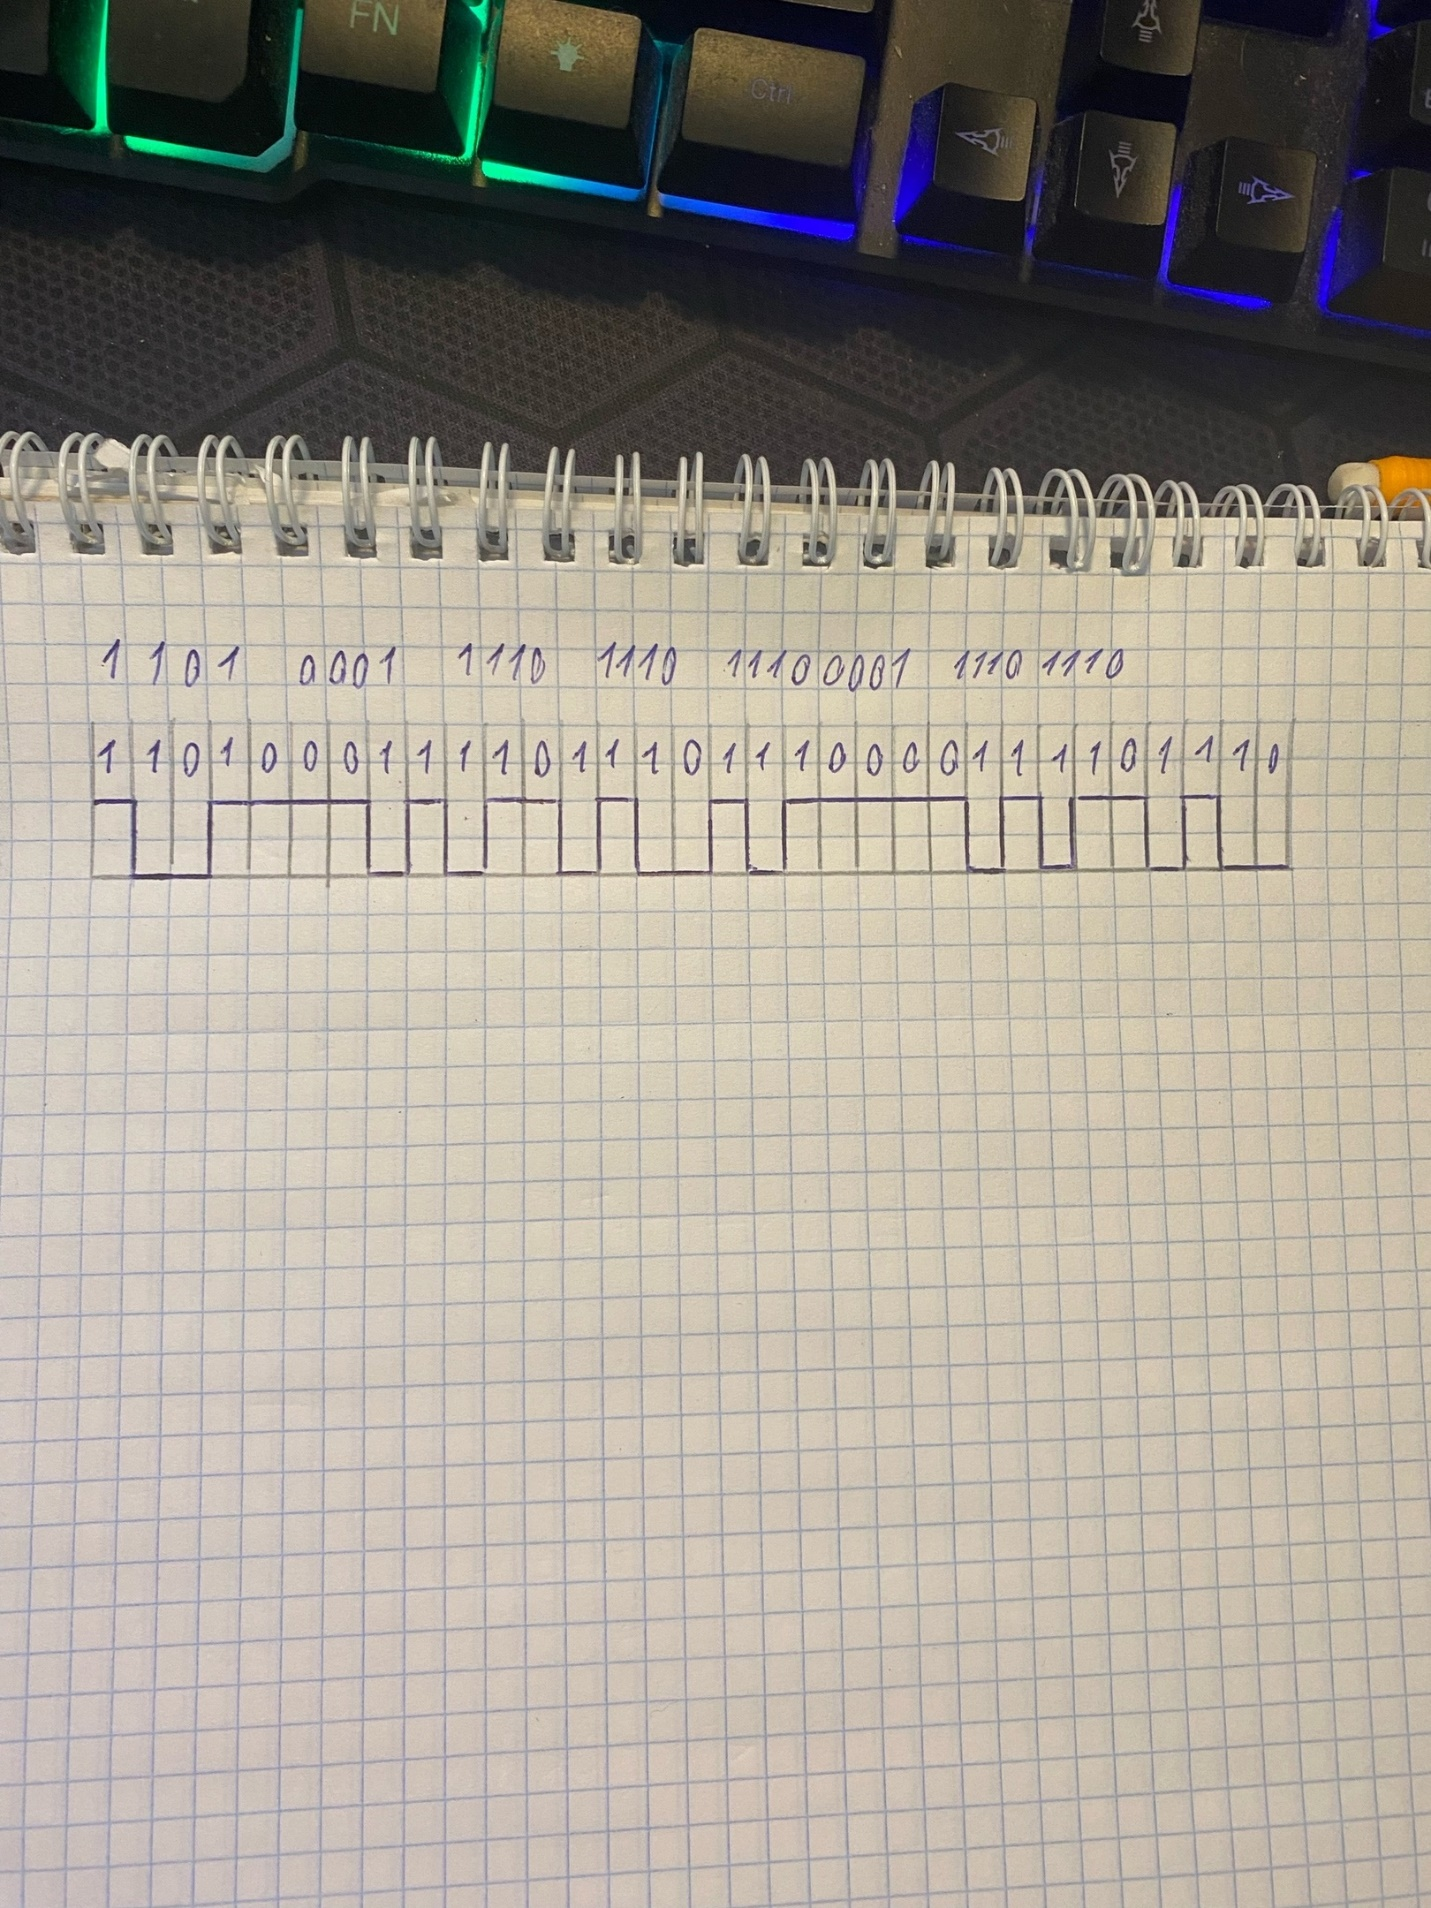 FN
Ctrl
1 1 0 1 0001 1110 1110 11100001 1110 1110
1 1 0 1 0 0 0 1 1 1 1 0 1 1 1 0 1 1 1 0 0 0 0 1 1 1 1 0 1 1 1 0